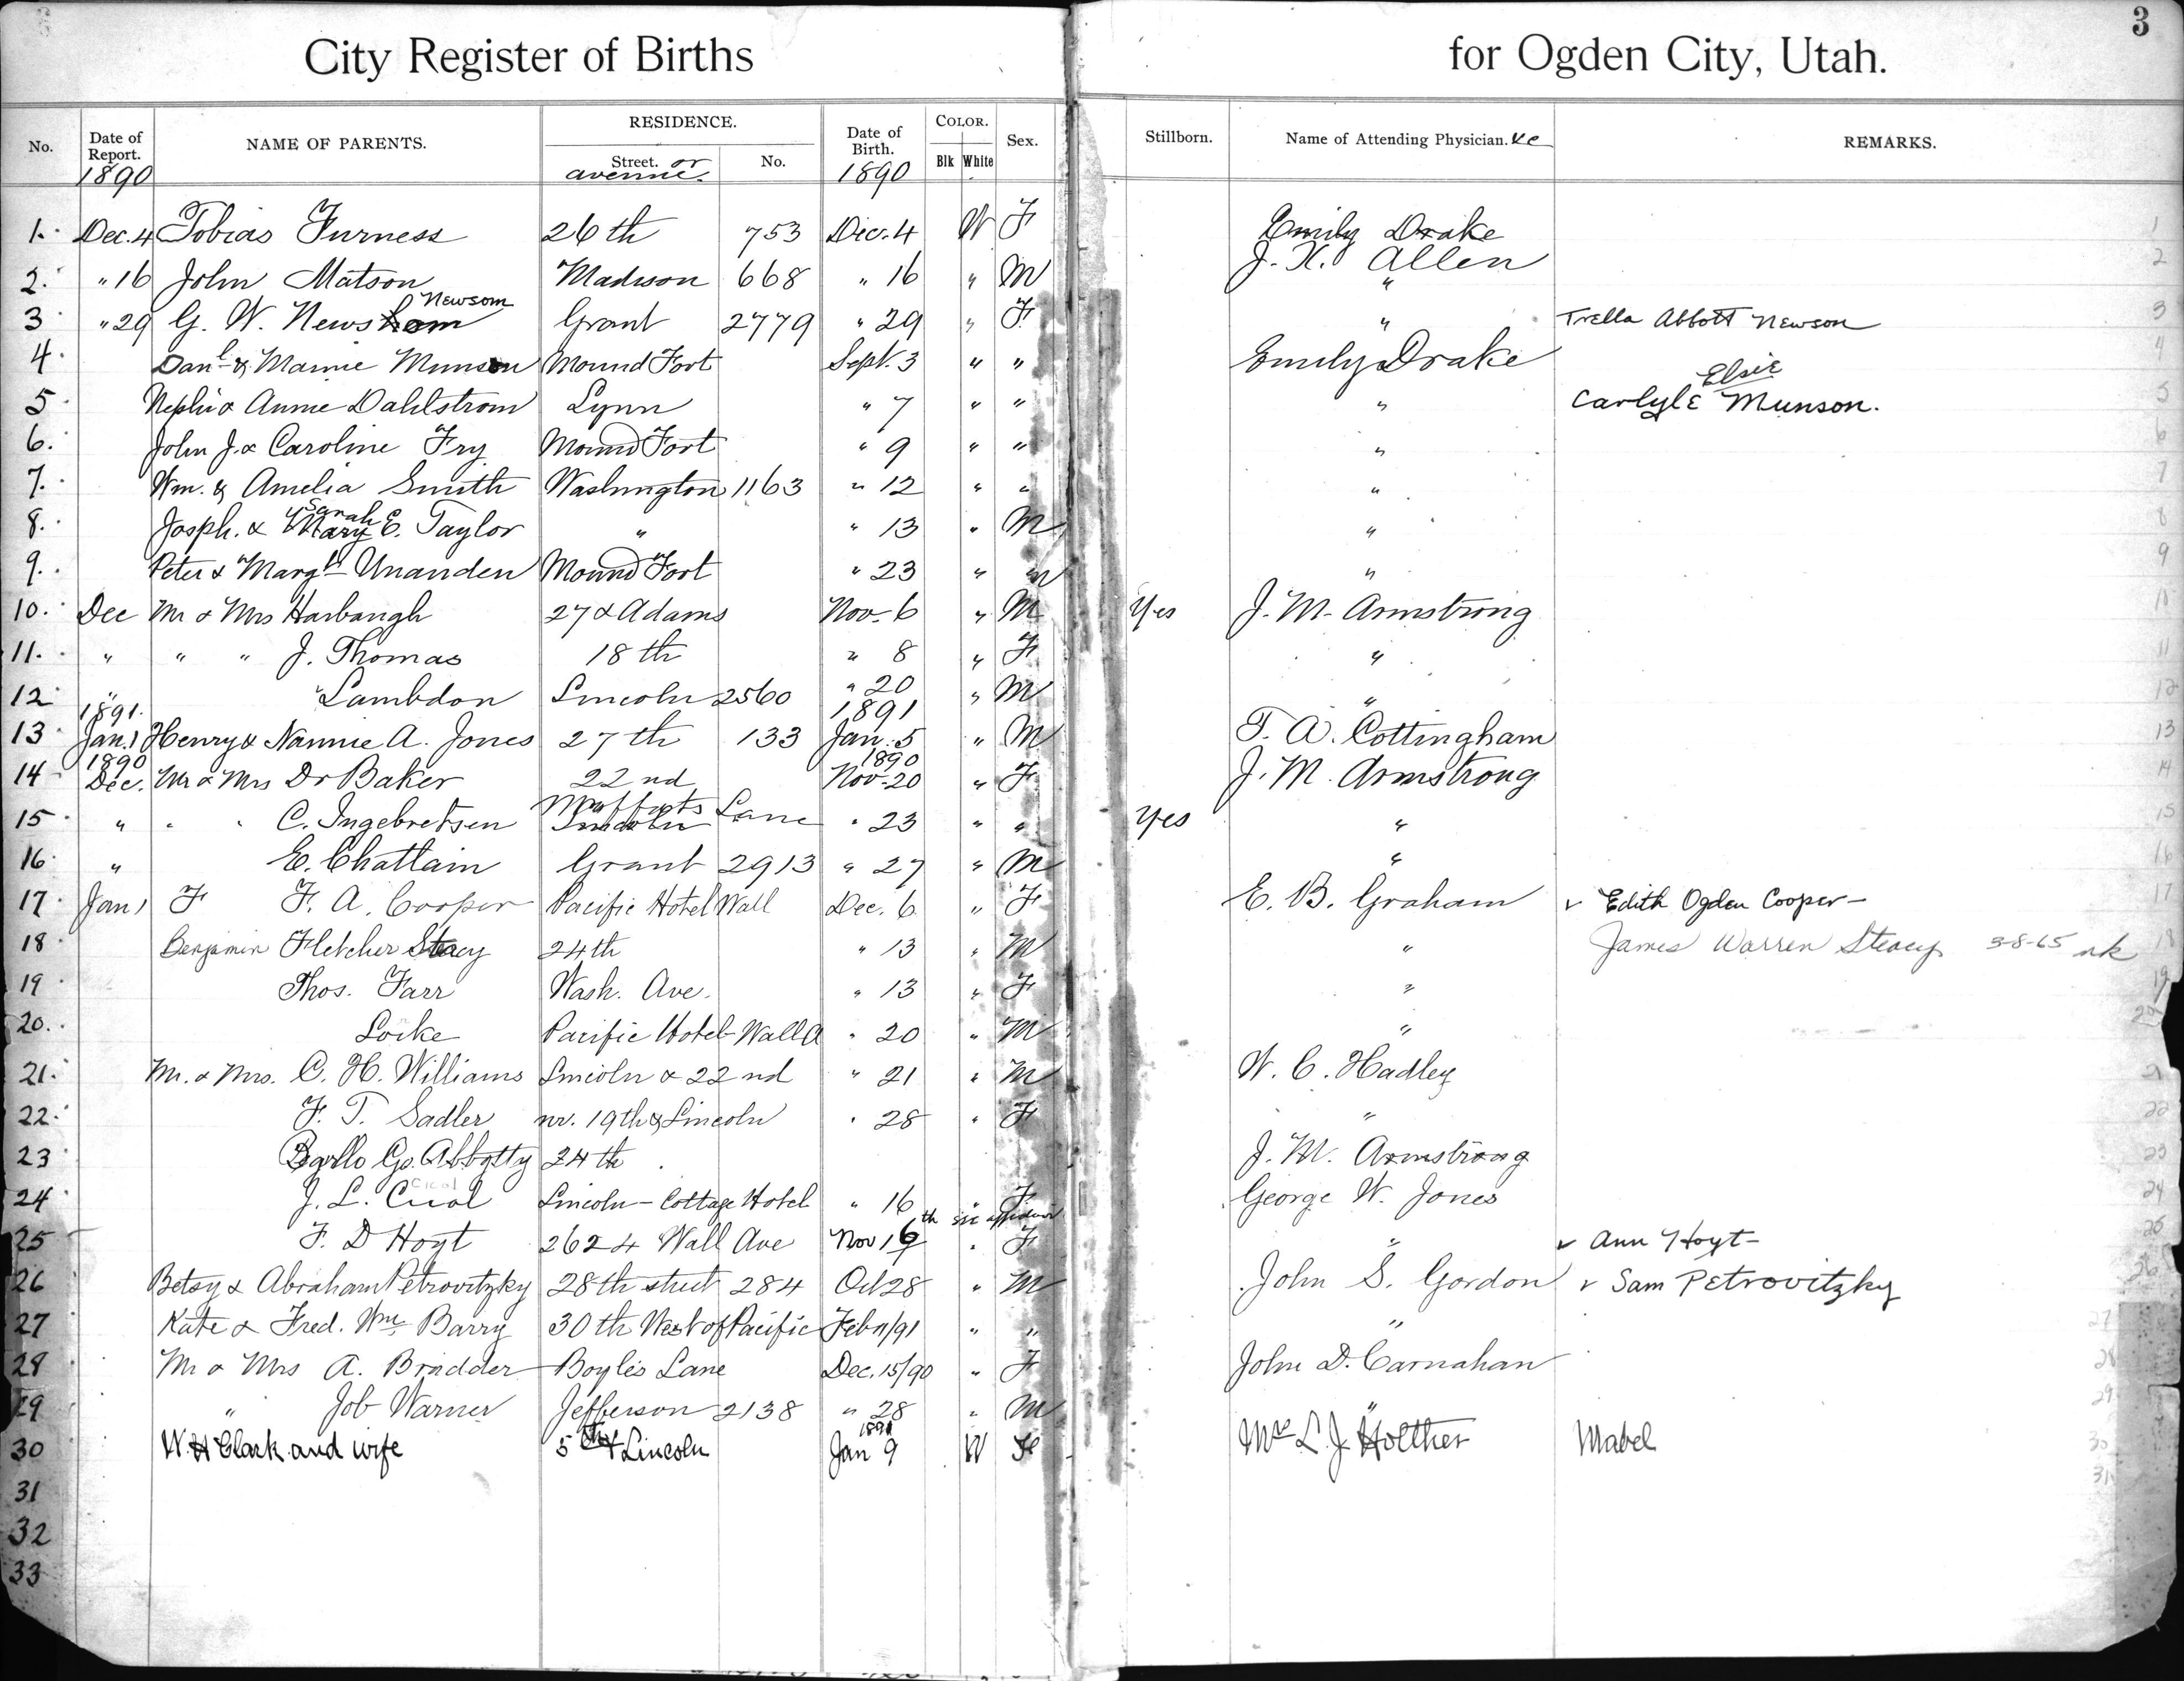 City Register of Births for Ogden City, Utah. 3
No. Date of Report. NAME OF PARENTS. RESIDENCE. Street. or avenue. No. Date of Birth. COLOR. Blk White Sex. Stillborn. Name of Attending Physician. &c REMARKS.
1890 1890
1. Dec. 4 Tobias Furness 26th 753 Dec. 4 W F Emily Drake 1
2. " 16 John Matson Madison 668 " 16 " M J. K. Allen " 2
3 " 29 G. W. Newsham Newsom Grant 2779 " 29 " F " Trella Abbott Newson 3
4. Danl & Mamie Munson Mound Fort Sept. 3 " " Emily Drake 4
5 Nephi & Annie Dahlstrom Lynn " 7 " " " Carlyle Elsie Munson. 5
6. John J. & Caroline Fry Mound Fort " 9 " " " 6
7. Wm. & Amelia Smith Washington 1163 " 12 " " " 7
8. Josph. & Mary Sarah E. Taylor " " 13 " M " 8
9. Peter & Margt Unanden Mound Fort " 23 " M " 9
10. Dec Mr & Mrs Harbaugh 27 & Adams Nov. 6 " M Yes J. M. Armstrong 10
11. " " " J. Thomas 18th " 8 " F " 11
12 " " Lambdon Lincoln 2560 " 20 " M " 12
1891. 1891
13 Jan. 1 Henry & Nannie A. Jones 27th 133 Jan. 5 " M T. A. Cottingham 13
1890 1890
14 Dec. Mr & Mrs Dr Baker 22nd Nov. 20 " F J. M. Armstrong 14
15 " " " C. Ingebretsen Lincoln Moffats Lane " 23 " " Yes " 15
16 " E. Chatlain Grant 2913 " 27 " M " 16
17. Jan 1 F F. A. Cooper Pacific Hotel Wall Dec. 6 " F E. B. Graham v Edith Ogden Cooper— 17
18 Benjamin Fletcher Stacy 24th " 13 " M " James Warren Steacy 3-8-65 nk 18
19 Thos. Farr Wash. Ave. " 13 " F " 19
20. Locke Pacific Hotel-Wall A " 20 " M " 20
21. Mr. & Mrs. C. H. Williams Lincoln & 22nd " 21 " M W. C. Hadley 21
22. F. T. Sadler nr. 19th & Lincoln " 28 " F " 22
23 24th J. M. Armstrong 23
24 J. L. Lincoln-Cottage Hotel " 16 " F George W. Jones 24
25 F. D Hoyt 2624 Wall Ave Nov 16 th " F " v Ann Hoyt— 25
26 Betsy & Abraham Petrovitzky 28th street 284 Oct 28 " M John S. Gordon v Sam Petrovitzky 26
27 Kate & Fred. Wm. Barry 30th West of Pacific Feb 11/91 " " " 27
28 Mr & Mrs A. Bradder Boyle's Lane Dec. 15/90 " F John D. Carnahan 28
29 " Job Warner Jefferson 2138 " 28 " M " 29
30 W. H Clark and wife 5th & Lincoln 1891 Jan 9 W F Mrs L. J. Holther Mabel 30
31 31
32
33